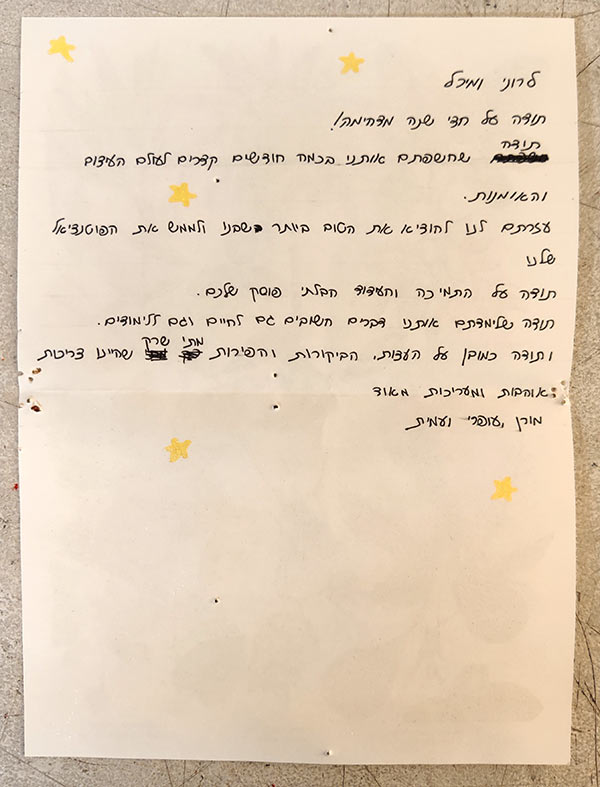 לרוני ומיכל
תודה על חצי שנה מדהימה!
תודה שחשפתם אותנו בכמה חודשים קצרים לעולם העיצוב
והאומנות.
עזרתם לנו להוציא את הטוב ביותר שבנו ולממש את הפוטנציאל
שלנו
תודה על התמיכה והעידוד הבלתי פוסק שלכם.
תודה שלימדתם אותנו דברים חשובים גם לחיים וגם ללימודים.
ותודה כמובן על העצות, הביקורות והפירות מתי שרק שהיינו צריכות
אוהבות ומעריכות מאוד
מורן, עופרי ועמית